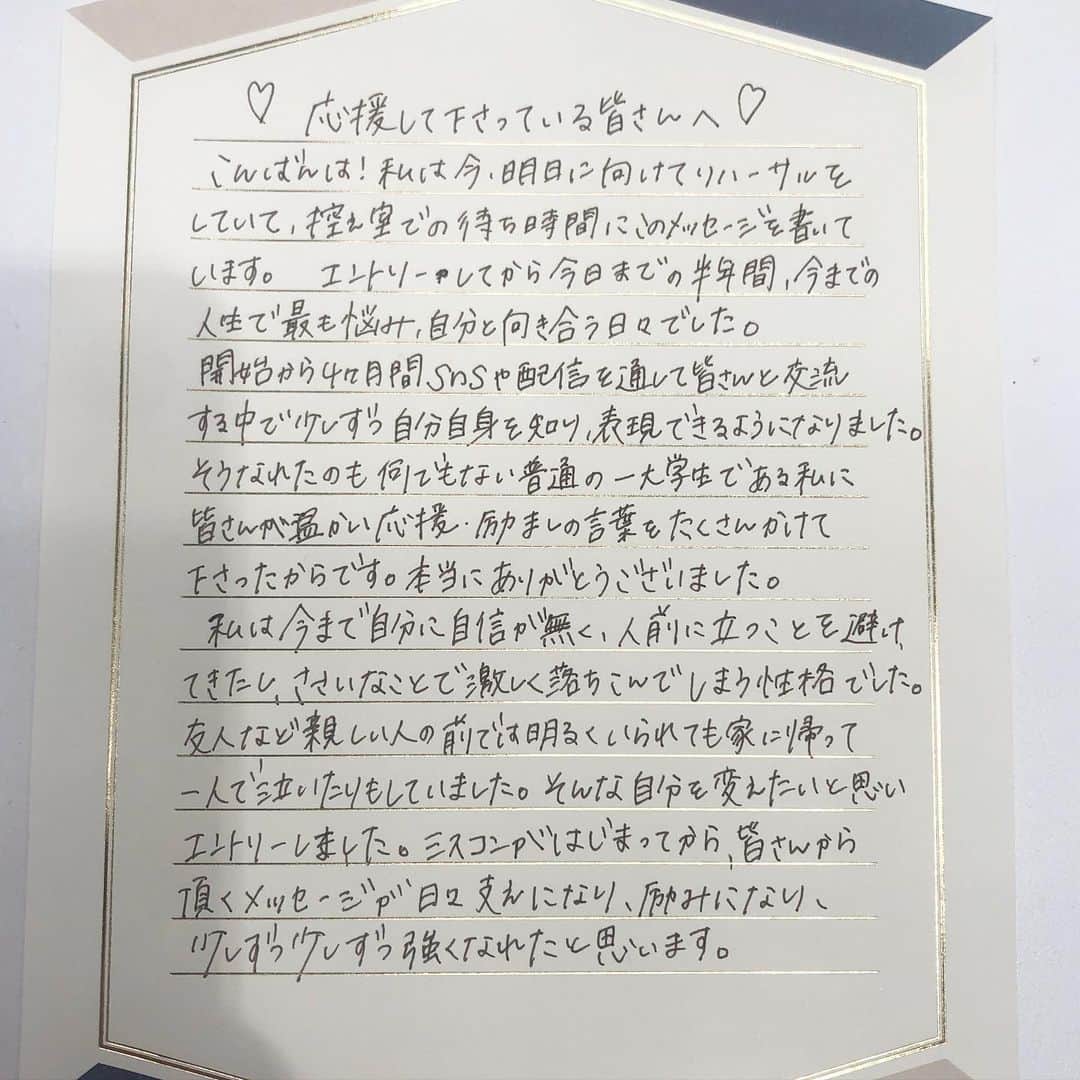 ♡ 応援して下さっている皆さんへ ♡
こんばんは！私は今、明日に向けてリハーサルを
していて、控え室での待ち時間にこのメッセージを書いて
います。 エントリーしてから今日までの半年間、今までの
人生で最も悩み、自分と向き合う日々でした。
開始から4ヶ月間SNSや配信を通して皆さんと交流
する中で少しずつ自分自身を知り、表現できるようになりました。
そうなれたのも何でもない普通の一大学生である私に
皆さんが温かい応援・励ましの言葉をたくさんかけて
下さったからです。本当にありがとうございました。
私は今まで自分に自信が無く、人前に立つことを避け
てきたし、ささいなことで激しく落ちこんでしまう性格でした。
友人など親しい人の前では明るくいられても家に帰って
一人で泣いたりもしていました。そんな自分を変えたいと思い
エントリーしました。ミスコンがはじまってから、皆さんから
頂くメッセージが日々支えになり、励みになり、
少しずつ少しずつ強くなれたと思います。